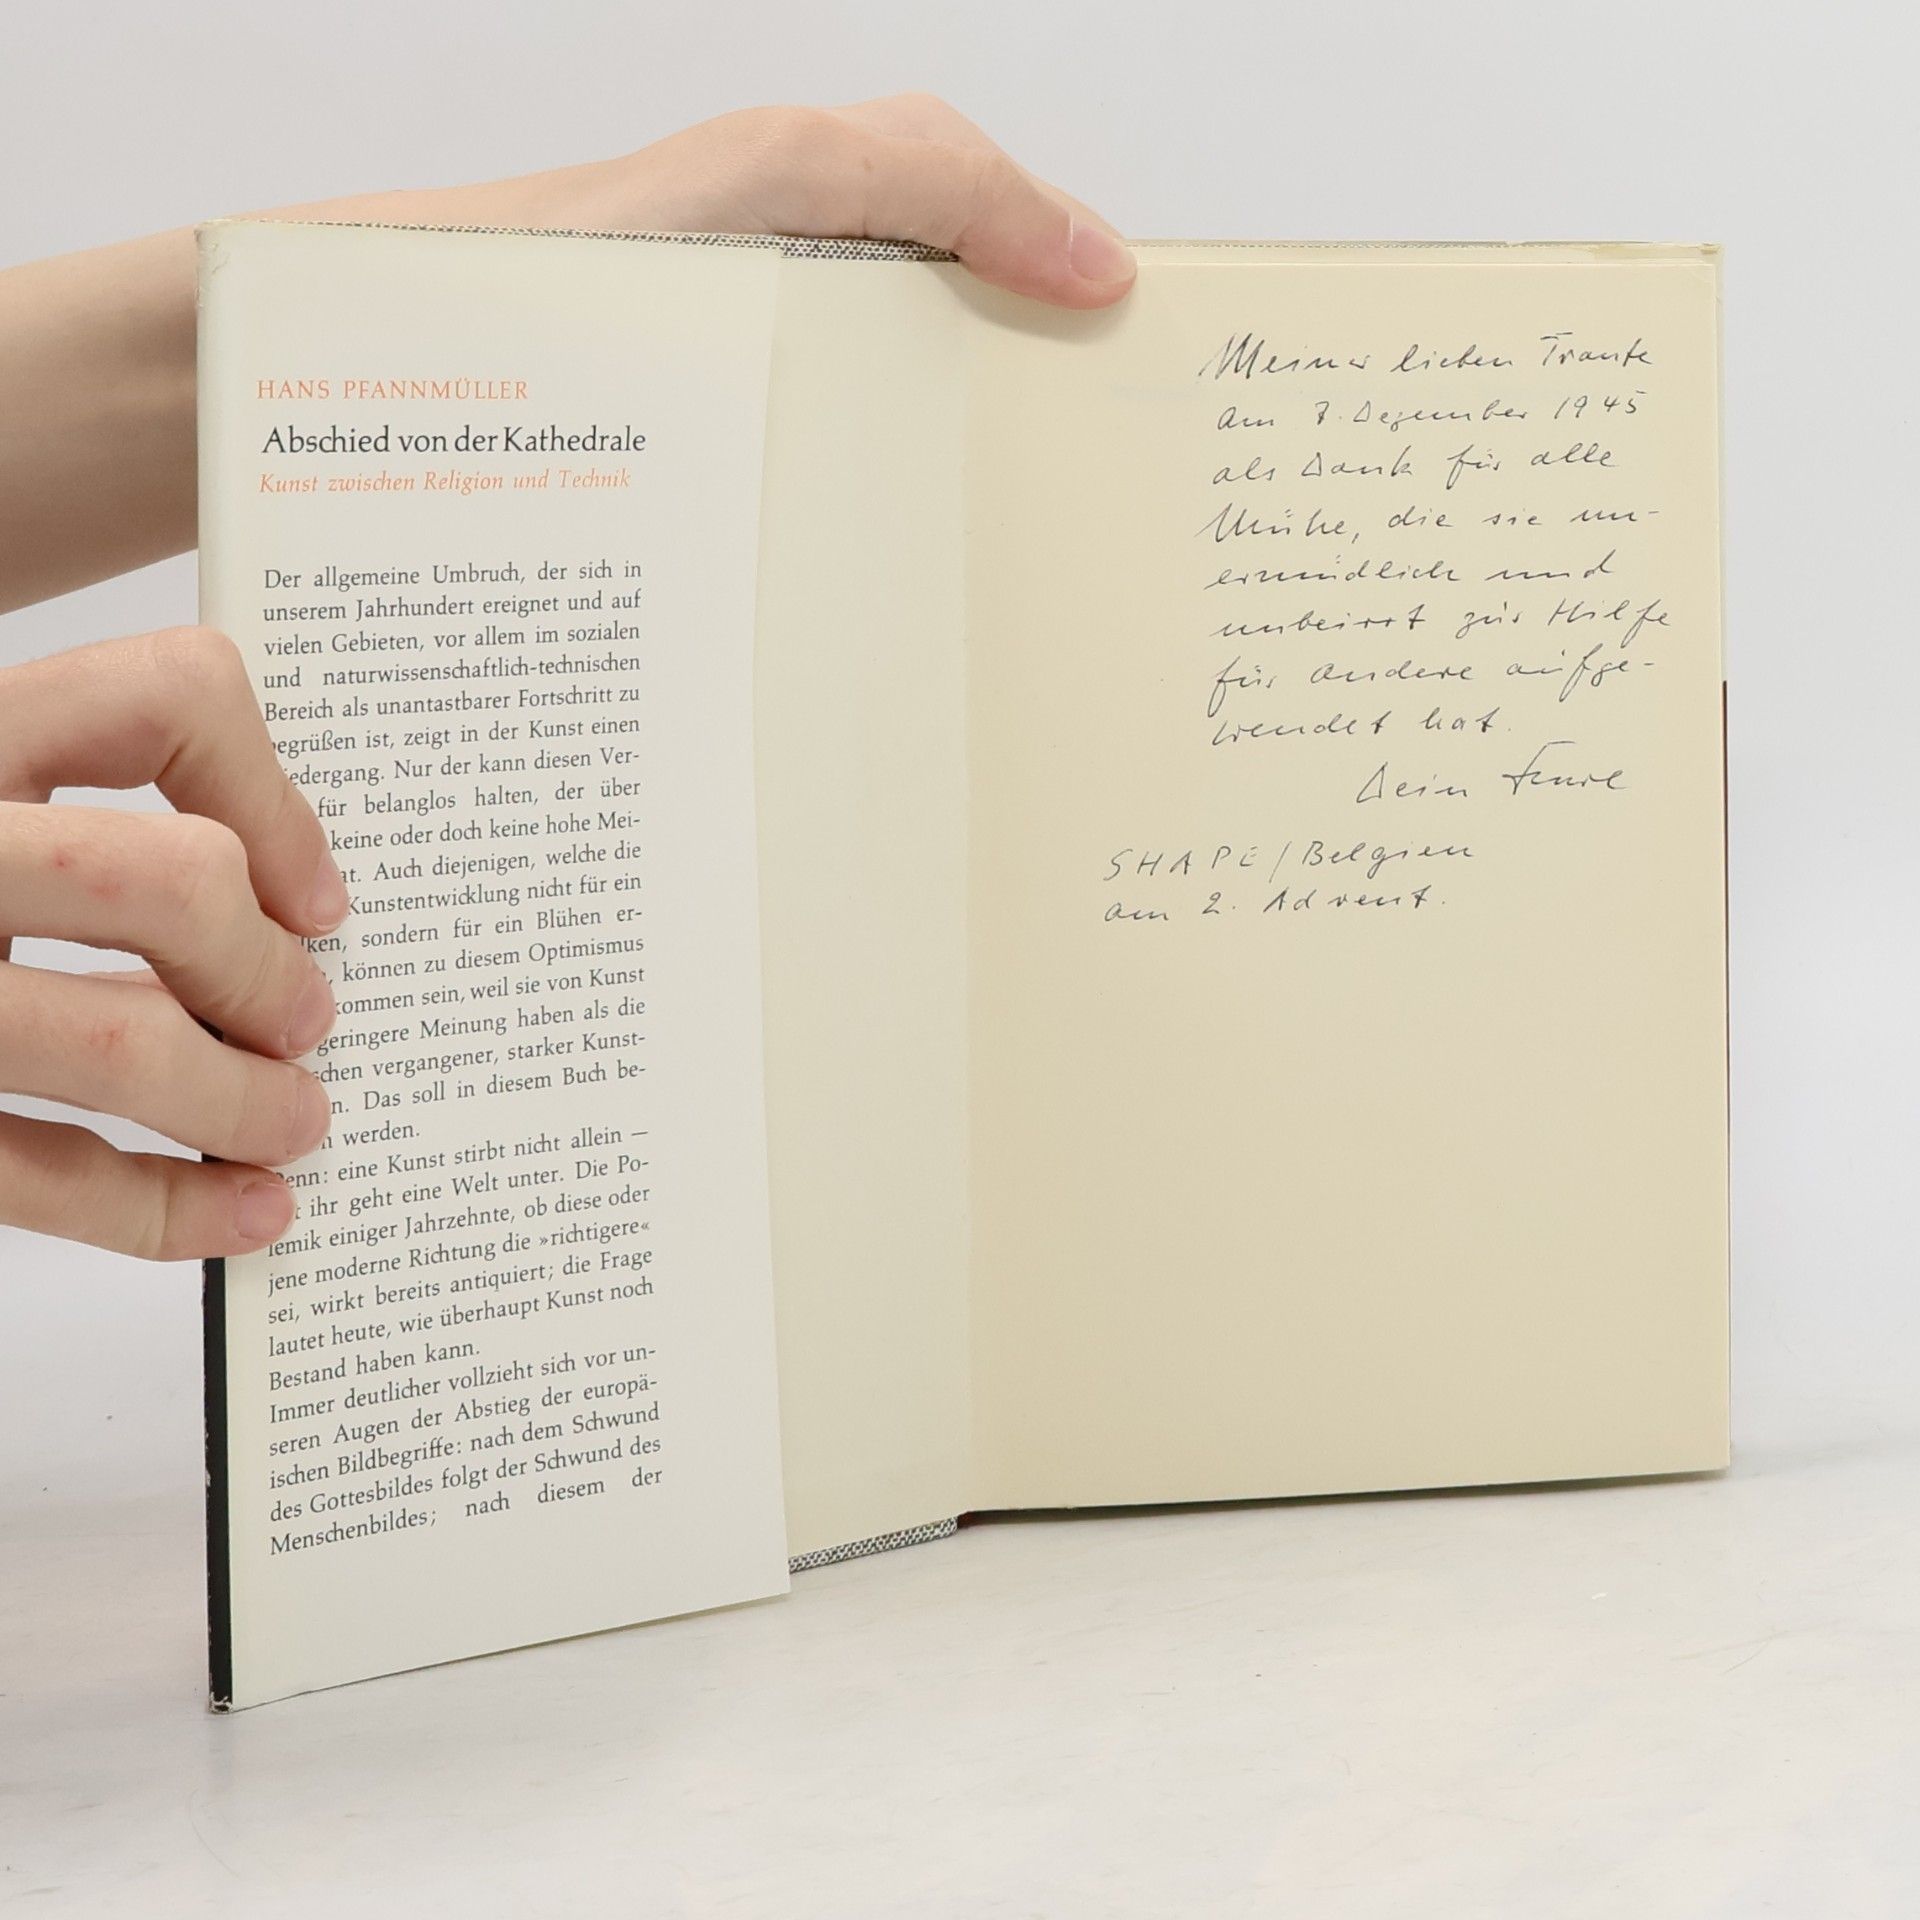 HANS PFANNMÜLLER
Abschied von der Kathedrale
Kunst zwischen Religion und Technik
Der allgemeine Umbruch, der sich in
unserem Jahrhundert ereignet und auf
vielen Gebieten, vor allem im sozialen
und naturwissenschaftlich-technischen
Bereich als unantastbarer Fortschritt zu
egrüßen ist, zeigt in der Kunst einen
iedergang. Nur der kann diesen Ver-
für belanglos halten, der über
keine oder doch keine hohe Mei-
at. Auch diejenigen, welche die
Kunstentwicklung nicht für ein
ken, sondern für ein Blühen er-
, können zu diesem Optimismus
kommen sein, weil sie von Kunst
geringere Meinung haben als die
schen vergangener, starker Kunst-
n. Das soll in diesem Buch be-
n werden.
Denn: eine Kunst stirbt nicht allein —
t ihr geht eine Welt unter. Die Po-
lemik einiger Jahrzehnte, ob diese oder
jene moderne Richtung die »richtigere«
sei, wirkt bereits antiquiert; die Frage
lautet heute, wie überhaupt Kunst noch
Bestand haben kann.
Immer deutlicher vollzieht sich vor un-
seren Augen der Abstieg der europä-
ischen Bildbegriffe: nach dem Schwund
des Gottesbildes folgt der Schwund des
Menschenbildes; nach diesem der
Meiner lieben Traute
am 7. Dezember 1945
als Dank für alle
Mühe, die sie un-
ermüdlich und
unbeirrt zur Hilfe
für Andere aufge-
wendet hat.
Dein
SHAPE/Belgien
am 2. Advent.